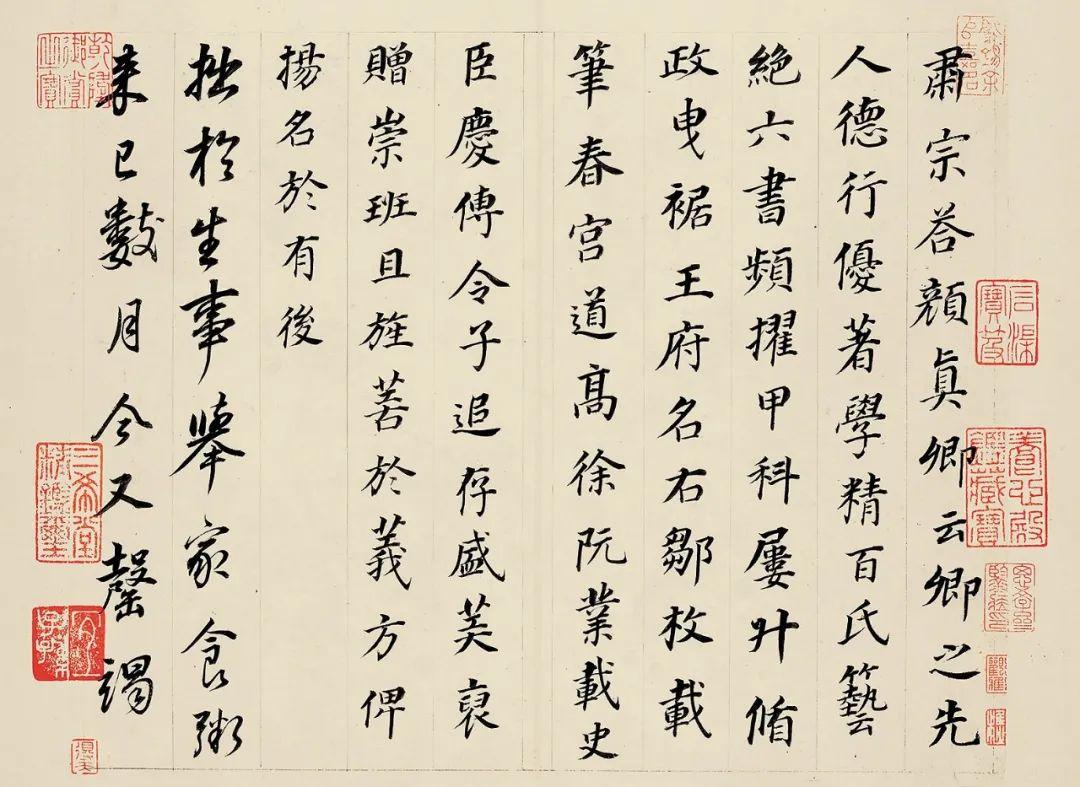 肅宗荅顏眞卿云卿之先
人德行優著學精百氏藝
絕六書頻擢甲科屢升循
政曳裾王府名右鄒枚載
筆春宮道髙徐阮業載史
臣慶傳令子追存盛美褒
贈崇班且旌善於義方俾
揚名於有後
拙於生事舉家食粥
來已數月今又罄竭
石渠寶笈
養心殿鑑藏寶
三希堂精鑑璽
宜子孫